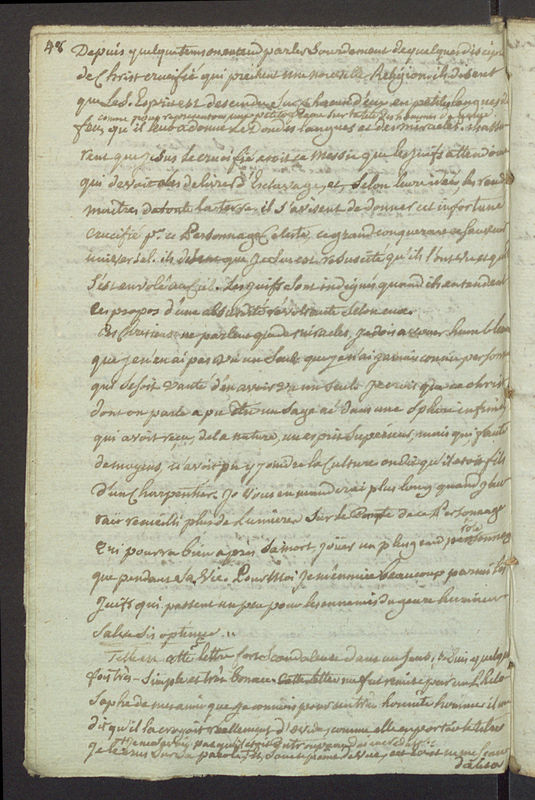 48 Depuis quelque tems on entend parler sourdement de quelques disciples
de Christ crucifié qui prechent une nouvelle Religion. ils disent
que le S. Esprit est descendu sur chacun d'eux en petites langues de
comme nous representons une petite flame sur la tete des hommes de genie.
feu, qu'il leur a donné le don des langues et des miracles. ils assu-
rent que Jesus le crucifié etoit ce Messie que les juifs attendoient
qui devoit les delivrer d'Esclavage, et selon leurs idées les rendre
maitres de toute la terre. il s'avisent de donner cet infortuné
crucifié pr. ce Personnage Celeste, ce grand conquerant ce sauveur
universel. ils disent que Jesus est resuscité qu'ils l'ont vu et qu'il
s'est envolé au Ciel. Les juifs sont indignés quand ils entendent
ces propos d'une absurdité revoltante selon eux.
Ces Chretiens ne parlent que de miracles, je dois avouer humblement
que je n'en ai pas vu un seul, que je n'ai jamais connu personne
qui se soit vanté d'en avoir vu un seul. Je crois que ce Christ
dont on parle a pu être un sage né dans une sphere infime
qui avoit reçu de la nature, un esprit superieur, mais qui faute
de moyens, n'avoit pu y joindre la Culture on dit qu'il etoit fils
d'un Charpentier. Je vous en manderai plus long quand j'au-
rai recueilli plus de Lumieres sur le Compte de ce Personnage
qui pourra bien après sa mort jouer un plus grand rôle
que pendant sa Vie. Pour Moi je m'ennuie beaucoup parmi les
Juifs qui passent un peu pour les ennemis du genre humain
Salve dis optime.
Telle est cette lettre fort scandaleuse dans un sens, & puis quelque
fois très-simple et très bonace. Cette lettre me fut remise par un Philo-
sophe de mes amis que je connois pour un très honnête homme il me
dit qu'il la croyoit reellement d'Ovide, comme elle en portoit le titre